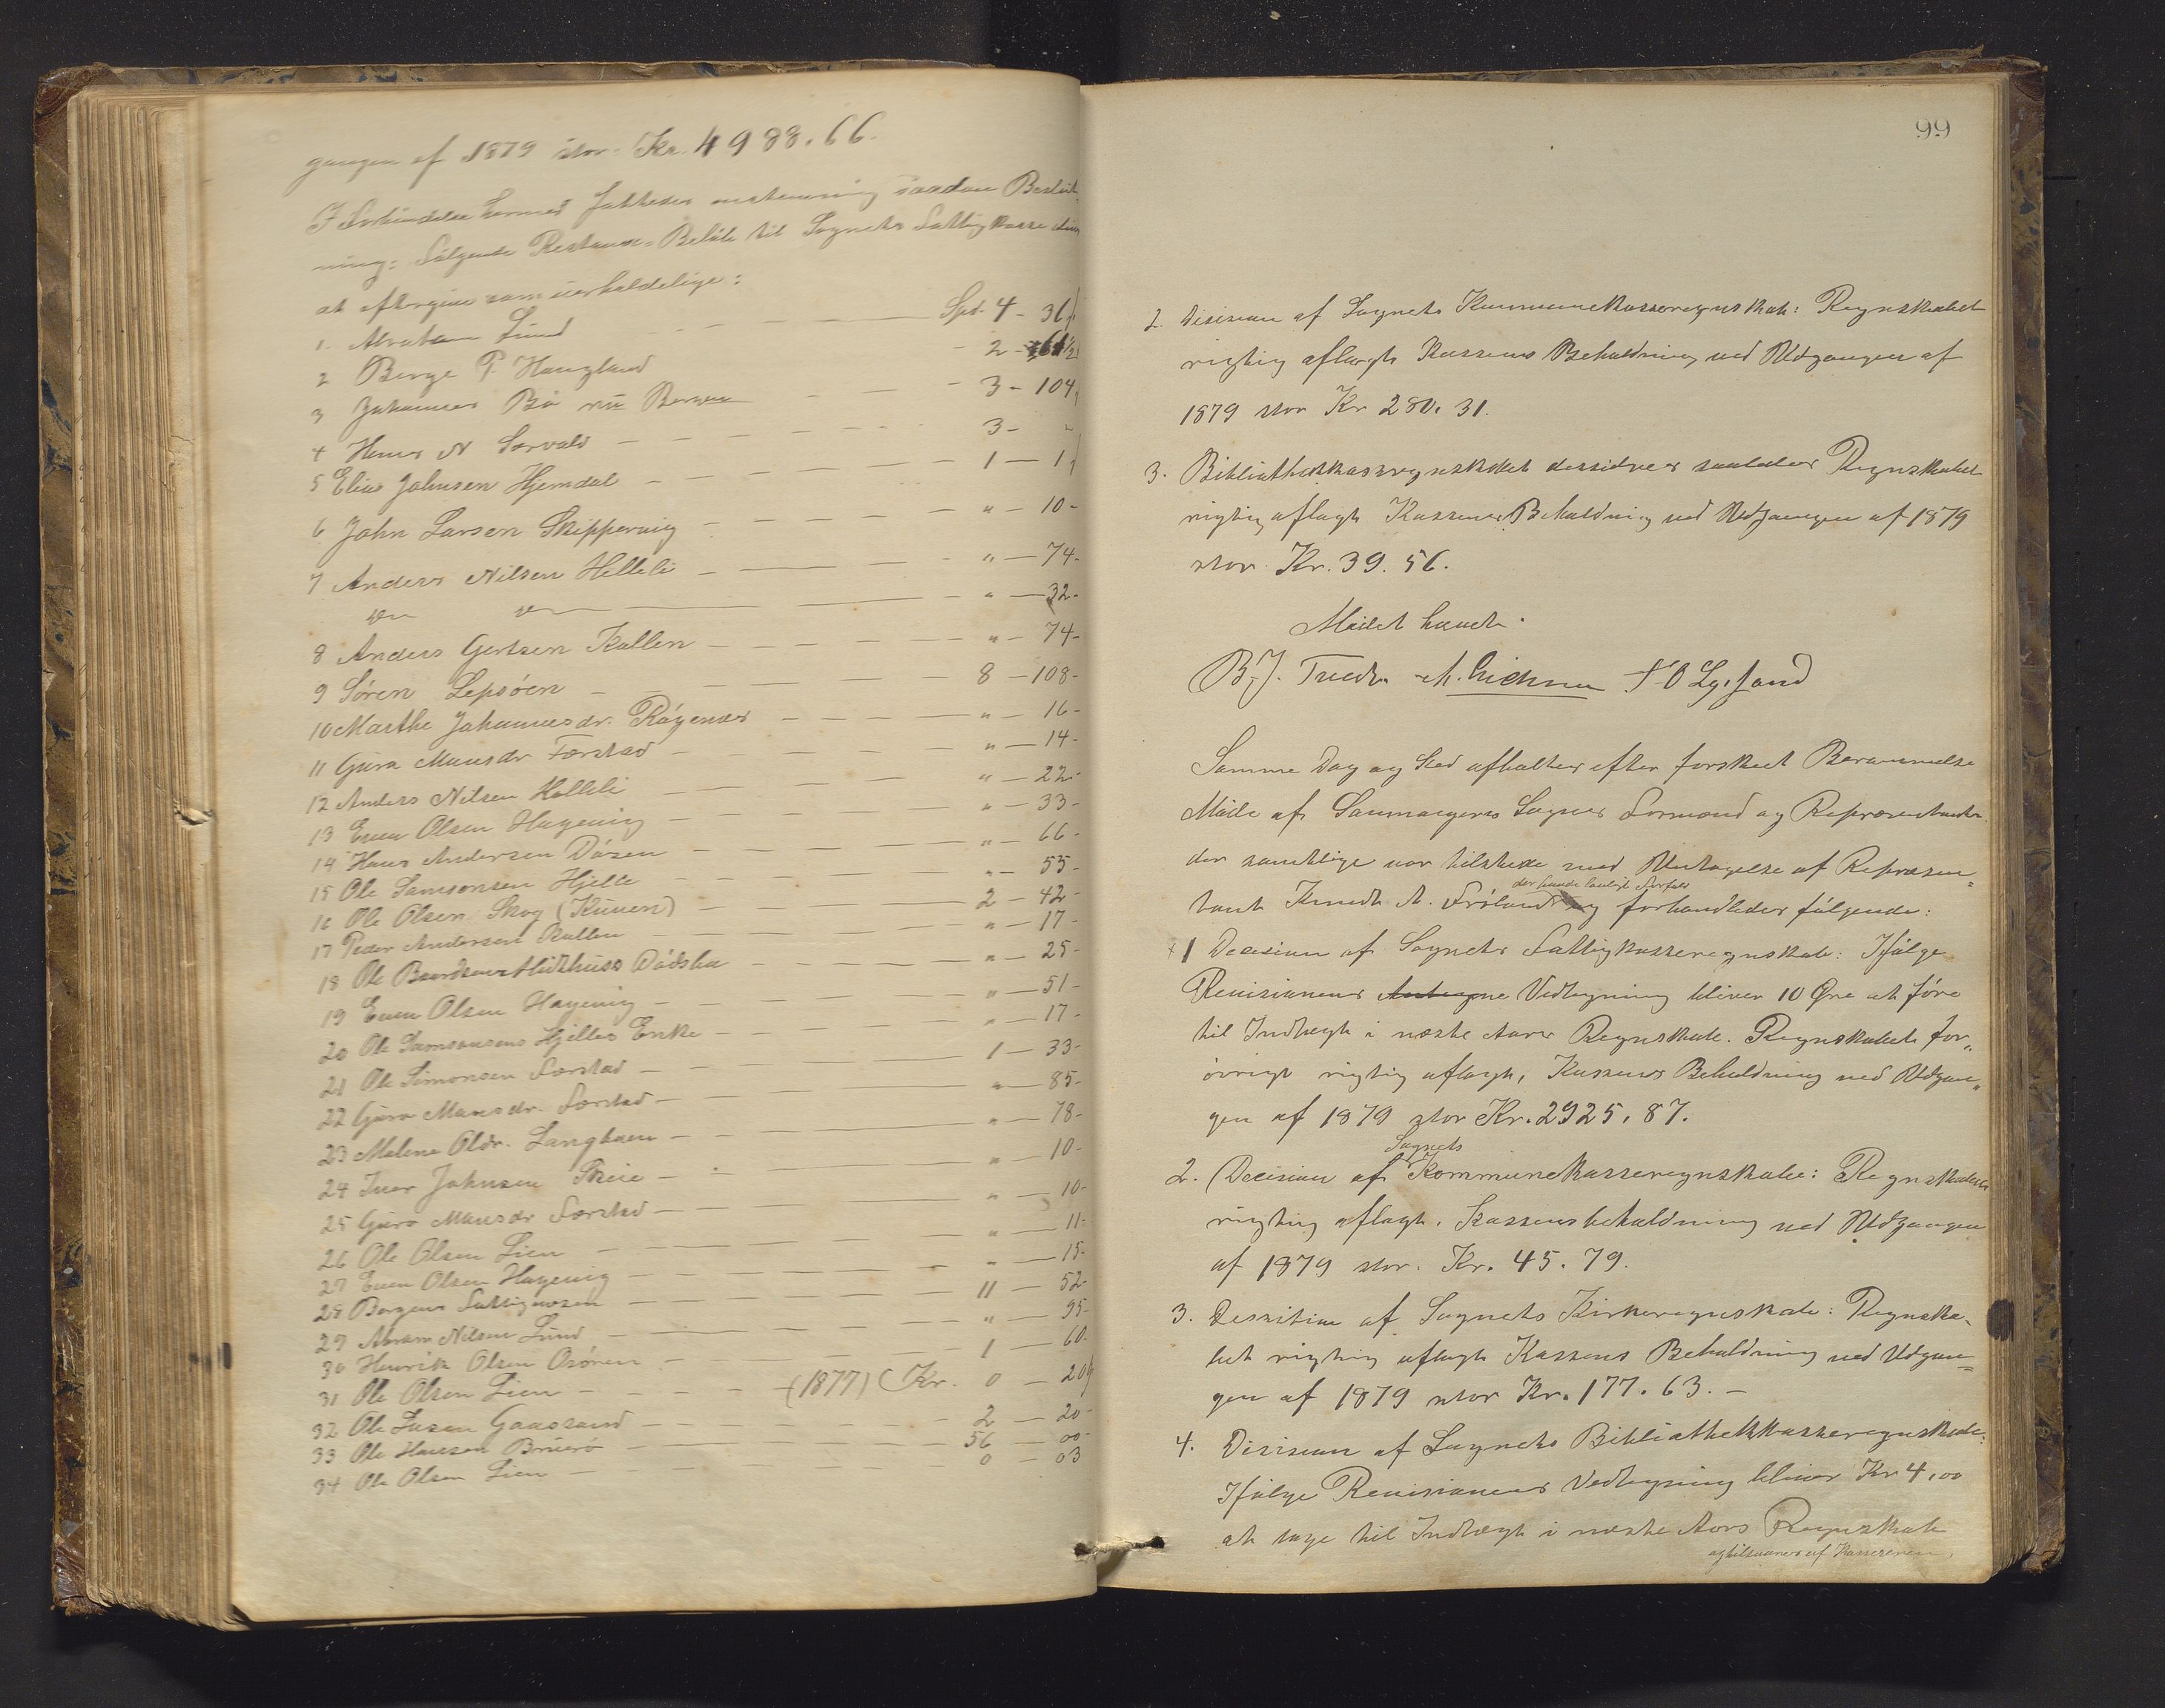 gangen af 1879 stor Kr. 4988.66.
I Forbindelse hermed fattedes enstemmig saadan Beslut
ning: Følgende Restance-Beløb til Sognets Fattigkasse
at eftergive som uerholdelige:
1. Abraham Lund — Spd. 4 - 36
2 Berge P. Haugland - 2 -
3 Johannes Bø nu Bergen - 3 - 104
4 Hans N Sørvold - 3 - "
5 Elias Johnsen Hjemdal - 1 - 1
6 John Larsen Skippervig - " - 10 -
7 Anders Nilsen Helleli - " - 74 -
do do - " - 32 -
8 Anders Gertsen Kallen - " - 74 -
9 Søren Lepsøen - 8 - 108 -
10 Marthe Johannesdr. Røgenæs - " - 16 -
11 Guro Mansdr Færstad - " - 14 -
12 Anders Nilsen Helleli - " - 22 -
13 Even Olsen Hagevig - " - 33 -
14 Hans Andersen Døsen - " - 66 -
15 Ole Samsonsen Hjelle - " - 55 -
16 Ole Olsen Skog (Kuven) - 2 - 42 -
17 Peder Andersen Kallen - " - 17 -
18 Ole Baardsen Midthuss Dødsbo - " - 25 -
19 Even Olsen Hagevig - " - 51 -
20 Ole Samsonsens Hjelles Enke - " - 17 -
21 Ole Simonsen Færstad - 1 - 33 -
22 Guro Mansdr. Færstad - " - 85 -
23 Malene Oldr. Langhaen - " - 78 -
24 Iver Johnsen Skeie - " - 10 -
25 Guro Mansdr Færstad - " - 10 -
26 Ole Olsen Lien - " - 11 -
27 Even Olsen Hagevig - " - 15 -
28 Bergens Fattigvæsen - 11 - 52 -
29 Abram Nilsen Lund - " - 95 -
30 Henrik Olsen Osøren - 1 - 60 -
31 Ole Olsen Lien - (1877) Kr. 0 - 20
32 Ole Gaassand - 2 - 20 -
33 Ole Hansen Bruerø - 56 - 00 -
34 Ole Olsen Lien - 0 - 03
99
2. Decision af Sognets Kommunekasseregnskab: Regnskabet
rigtig aflagt Kassens Beholdning ved Udgangen af
1879 stor Kr 280.31.
3. Bibliothekkasregnskabet desideres saaledes Regnskabet
rigtig aflagt Kassens Beholdning ved Udgangen af 1879
stor Kr. 39.56.
Mødet hævet.
B. J. M.
Samme Dag og Sted afholdtes efter forskeet Berammelse
Møde af Samnangers Sogns Formænd og Repræsentanter
der samtlige var tilstede med Undtagelse af Repræsen=
der havde lovligt Forfald
tant Knudt A. Frøland og forhandledes følgende:
1 Decision af Sognets Fattigkasseregnskab: Ifølge
Revisionens Vedtegning bliver 10 Øre at føre
til Indtægt i næste Aars Regnskab. Regnskabet for„
øvrigt rigtig aflagt, Kassens Beholdning ved Udgan„
gen af 1879 stor Kr. 2925.87.
Sognets
2. Decision af Kommunekasseregnskabe: Regnskabet
rigtig aflagt. Kassensbeholdning ved Udgangen
af 1879 stor. Kr. 45.79.
3. Dessition af Sognets Kirkeregnskab: Regnska-
bet rigtig aflagt Kassens Beholdning ved Udgan=
gen af 1879 stor Kr. 177.63. —
4. Decision af Sognets Bibliothekkasseregnskab:
Ifølge Revisionens Vedtegning bliver Kr 4,00
at tage til Indtægt i næste Aars Regnskab
og tilsvares af Kassereren,